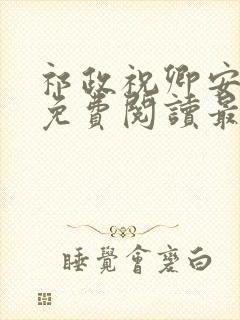 祁政祝卿安
免費閱讀最
睡覺會變白